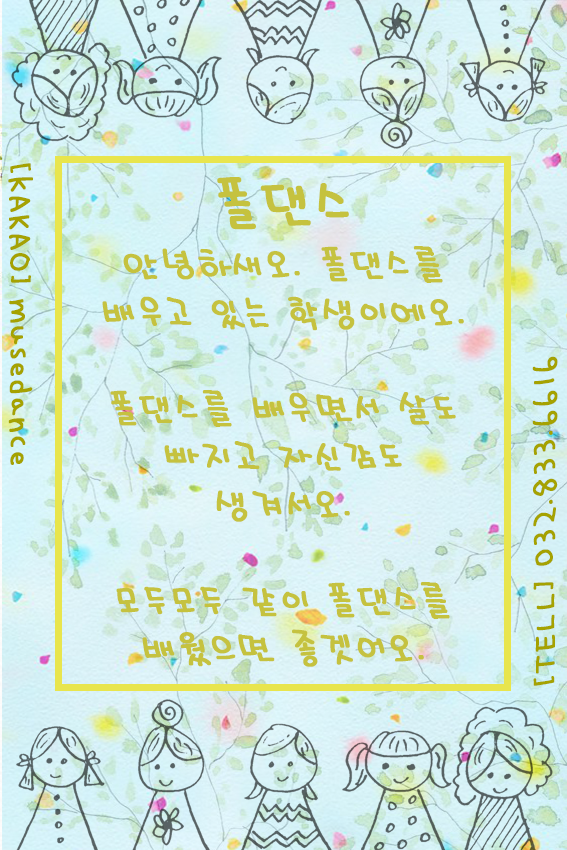 폴댄스
안녕하새오. 폴댄스를
배우고 있는 학생이에오.
폴댄스를 배우면서 살도
빠지고 자신감도
생겨서오.
모두모두 같이 폴댄스를
배웠으면 좋겟어오.
[KAKAO] musedance
[TELL] 032.833.6616